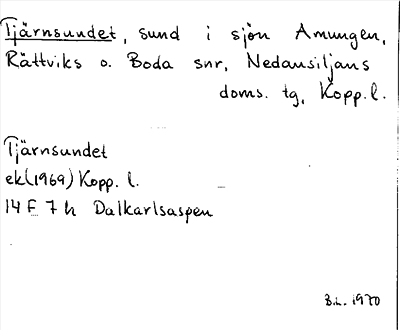 Tjärnsundet, sund i sjön Amungen,
Rättviks o. Boda snr, Nedansiljans
doms. tg, Kopp.l.
Tjärnsundet
ek(1969) Kopp. l.
14 F 7 h Dalkarlsaspen
B.L. 1970